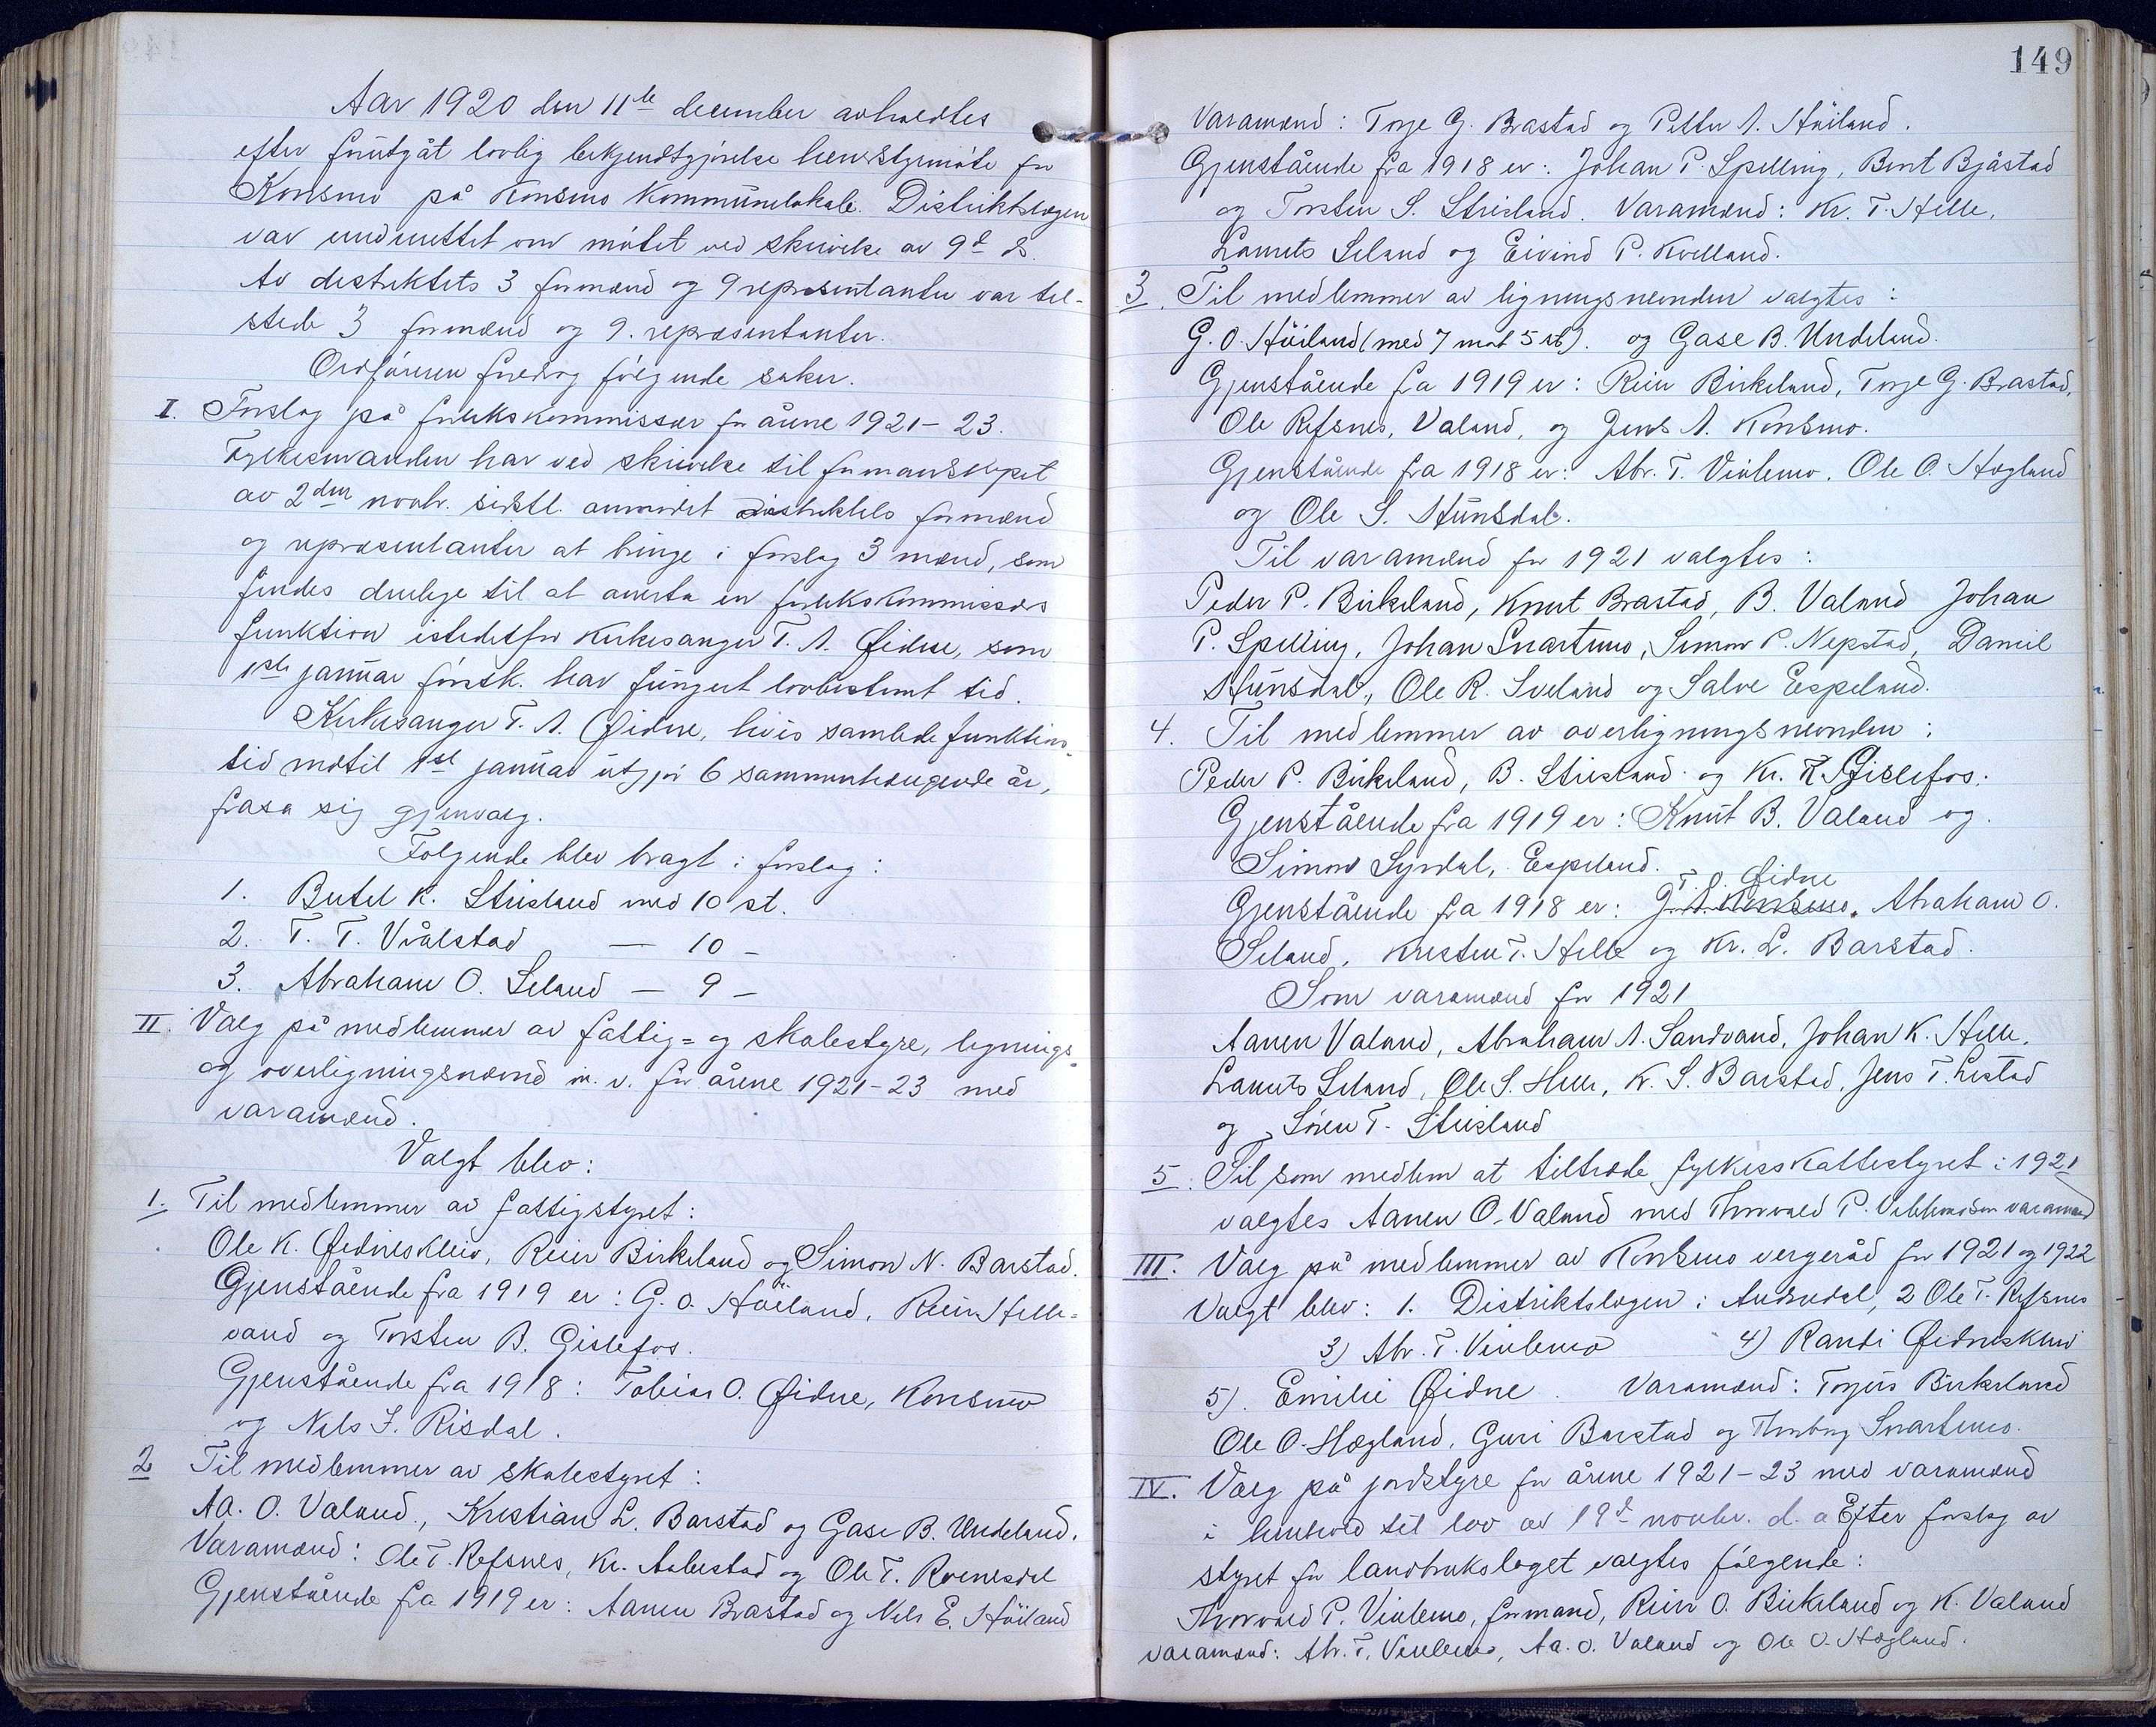 Aar 1920 den 11te december avholdtes
efter forutgåt lovlig bekjendtgjørelse herredsstyremøte for
Konsmo på Konsmo Kommunelokale. Distriktslægen
var underrettet om møtet ved skrivelse av 9de ds.
Av distriktets 3 formænd og 9 repræsentanter var til-
stede 3 formænd og 9. repræsentanter.
Ordføreren foredrog følgende saker.
I. Forslag på forlikskommissær for årene 1921-23.
Fylkesmanden har ved skrivelse til formandskapet
av 2den novbr. sistl. anmodet distriktets formænd
og repræsentanter at bringe i forslag 3 mænd, som
findes duelige til at overta en forlikskommissærs
funktion istedetfor Kirkesanger T. A. Øidne, som
1ste januar førstk. har fungert lovbestemt tid.
Kirkesanger T. A. Øidne, hvis samlede funktions-
tid indtil 1ste januar utgjør 6 sammenhængende år,
frasa sig gjenvalg.
Følgende blev bragt i forslag:
1. Bertel K. Stiesland med 10 st.
2. T. T. Vrålstad — 10 -
3. Abraham O. Seland — 9 -
II. Valg på medlemmer av fattig= og skolestyre, lignings-
og overligningsnævnd m. v. for årene 1921-23 med
varamænd.
Valgt blev:
1. Til medlemmer av fattigstyret:
Ole K. Øidneskleiv, Reier Birkeland og Simon N. Barstad.
Gjenstående fra 1919 er: G. O. Høiland, Reier Helle=
vand og Torsten B. Gislefos.
Gjenstående fra 1918: Tobias O. Øidne, Konsmo
og Nils J. Risdal.
2 Til medlemmer av skolestyret:
Aa. O. Valand., Kristian L. Barstad og Gase B. Undeland.
Varamænd: Ole T. Refsnes, Kr. Aabestad og Ole T. Roenesdal
Gjenstående fra 1919 er: Aanen Brastad og Nils E. Høiland
149
Varamænd: Torje G. Brastad og Petter A. Høiland.
Gjenstående fra 1918 er: Johan P. Spelling, Bent Bjåstad
og Torsten S. Stiesland. Varamænd: Kr. T. Helle,
Laurits Seland og Eivind P. Kvelland.
3. Til medlemmer av ligningsnevnden valgtes:
G. O. Høiland (med 7 mot 5 st). og Gase B. Undeland.
Gjenstående fra 1919 er: Reier Birkeland, Torje G. Brastad,
Ole Refsnes, Valand, og Jens A. Konsmo.
Gjenstående fra 1918 er: Abr. T. Viulemo. Ole O. Hægland
og Ole S. Hunsdal.
Til varamænd for 1921 valgtes:
Peder P. Birkeland, Knut Brastad, B. Valand Johan
P. Spelling, Johan Snartemo, Simon P. Nepstad, Daniel
Hunsdal., Ole R. Sveland og Salve Espeland.
4. Til medlemmer av overligningsnevnden:
Peder P. Birkeland, B. Stiesland og Kr. K. Gislefos.
Gjenstående fra 1919 er: Knut B. Valand og
Simon Syrdal, Espeland.
T. O. Øidne
Gjenstående fra 1918 er: J. A. Konsmo. Abraham O.
Seland, Kristen T. Helle og Kr. L. Barstad.
Som varamænd for 1921
Aanen Valand, Abraham A. Sandvand, Johan K. Helle.
Laurits Seland, Ole S. Helle, K. S. Barstad, Jens T. Lestad
og Søren T. Stiesland
5. Til som medlem at tiltræde fylkesskattestyret i 1921
valgtes Aanen O. Valand med Thorvald P. Viblemo som varamand
III. Valg på medlemmer av Konsmo vergeråd for 1921 og 1922
Valgt blev: 1. Distriktslægen i Audnedal, 2 Ole T. Refsnes
3) Abr. T. Viulemo 4) Randi Øidneskleiv
5). Emilie Øidne. Varamænd: Torjus Birkeland
Ole O. Hægland, Guri Barstad og Thorborg Snartemo.
IV. Valg på jordstyre for årene 1921-23 med varamænd
i henhold til lov av 19de novbr. d. a Efter forslag av
styret for landbrukslaget valgtes følgende:
Thorvald P. Viulemo, formand, Reier O. Birkeland og K. Valand
varamænd: Abr. T. Viulemo, Aa. O. Valand og Ole O. Hægland.